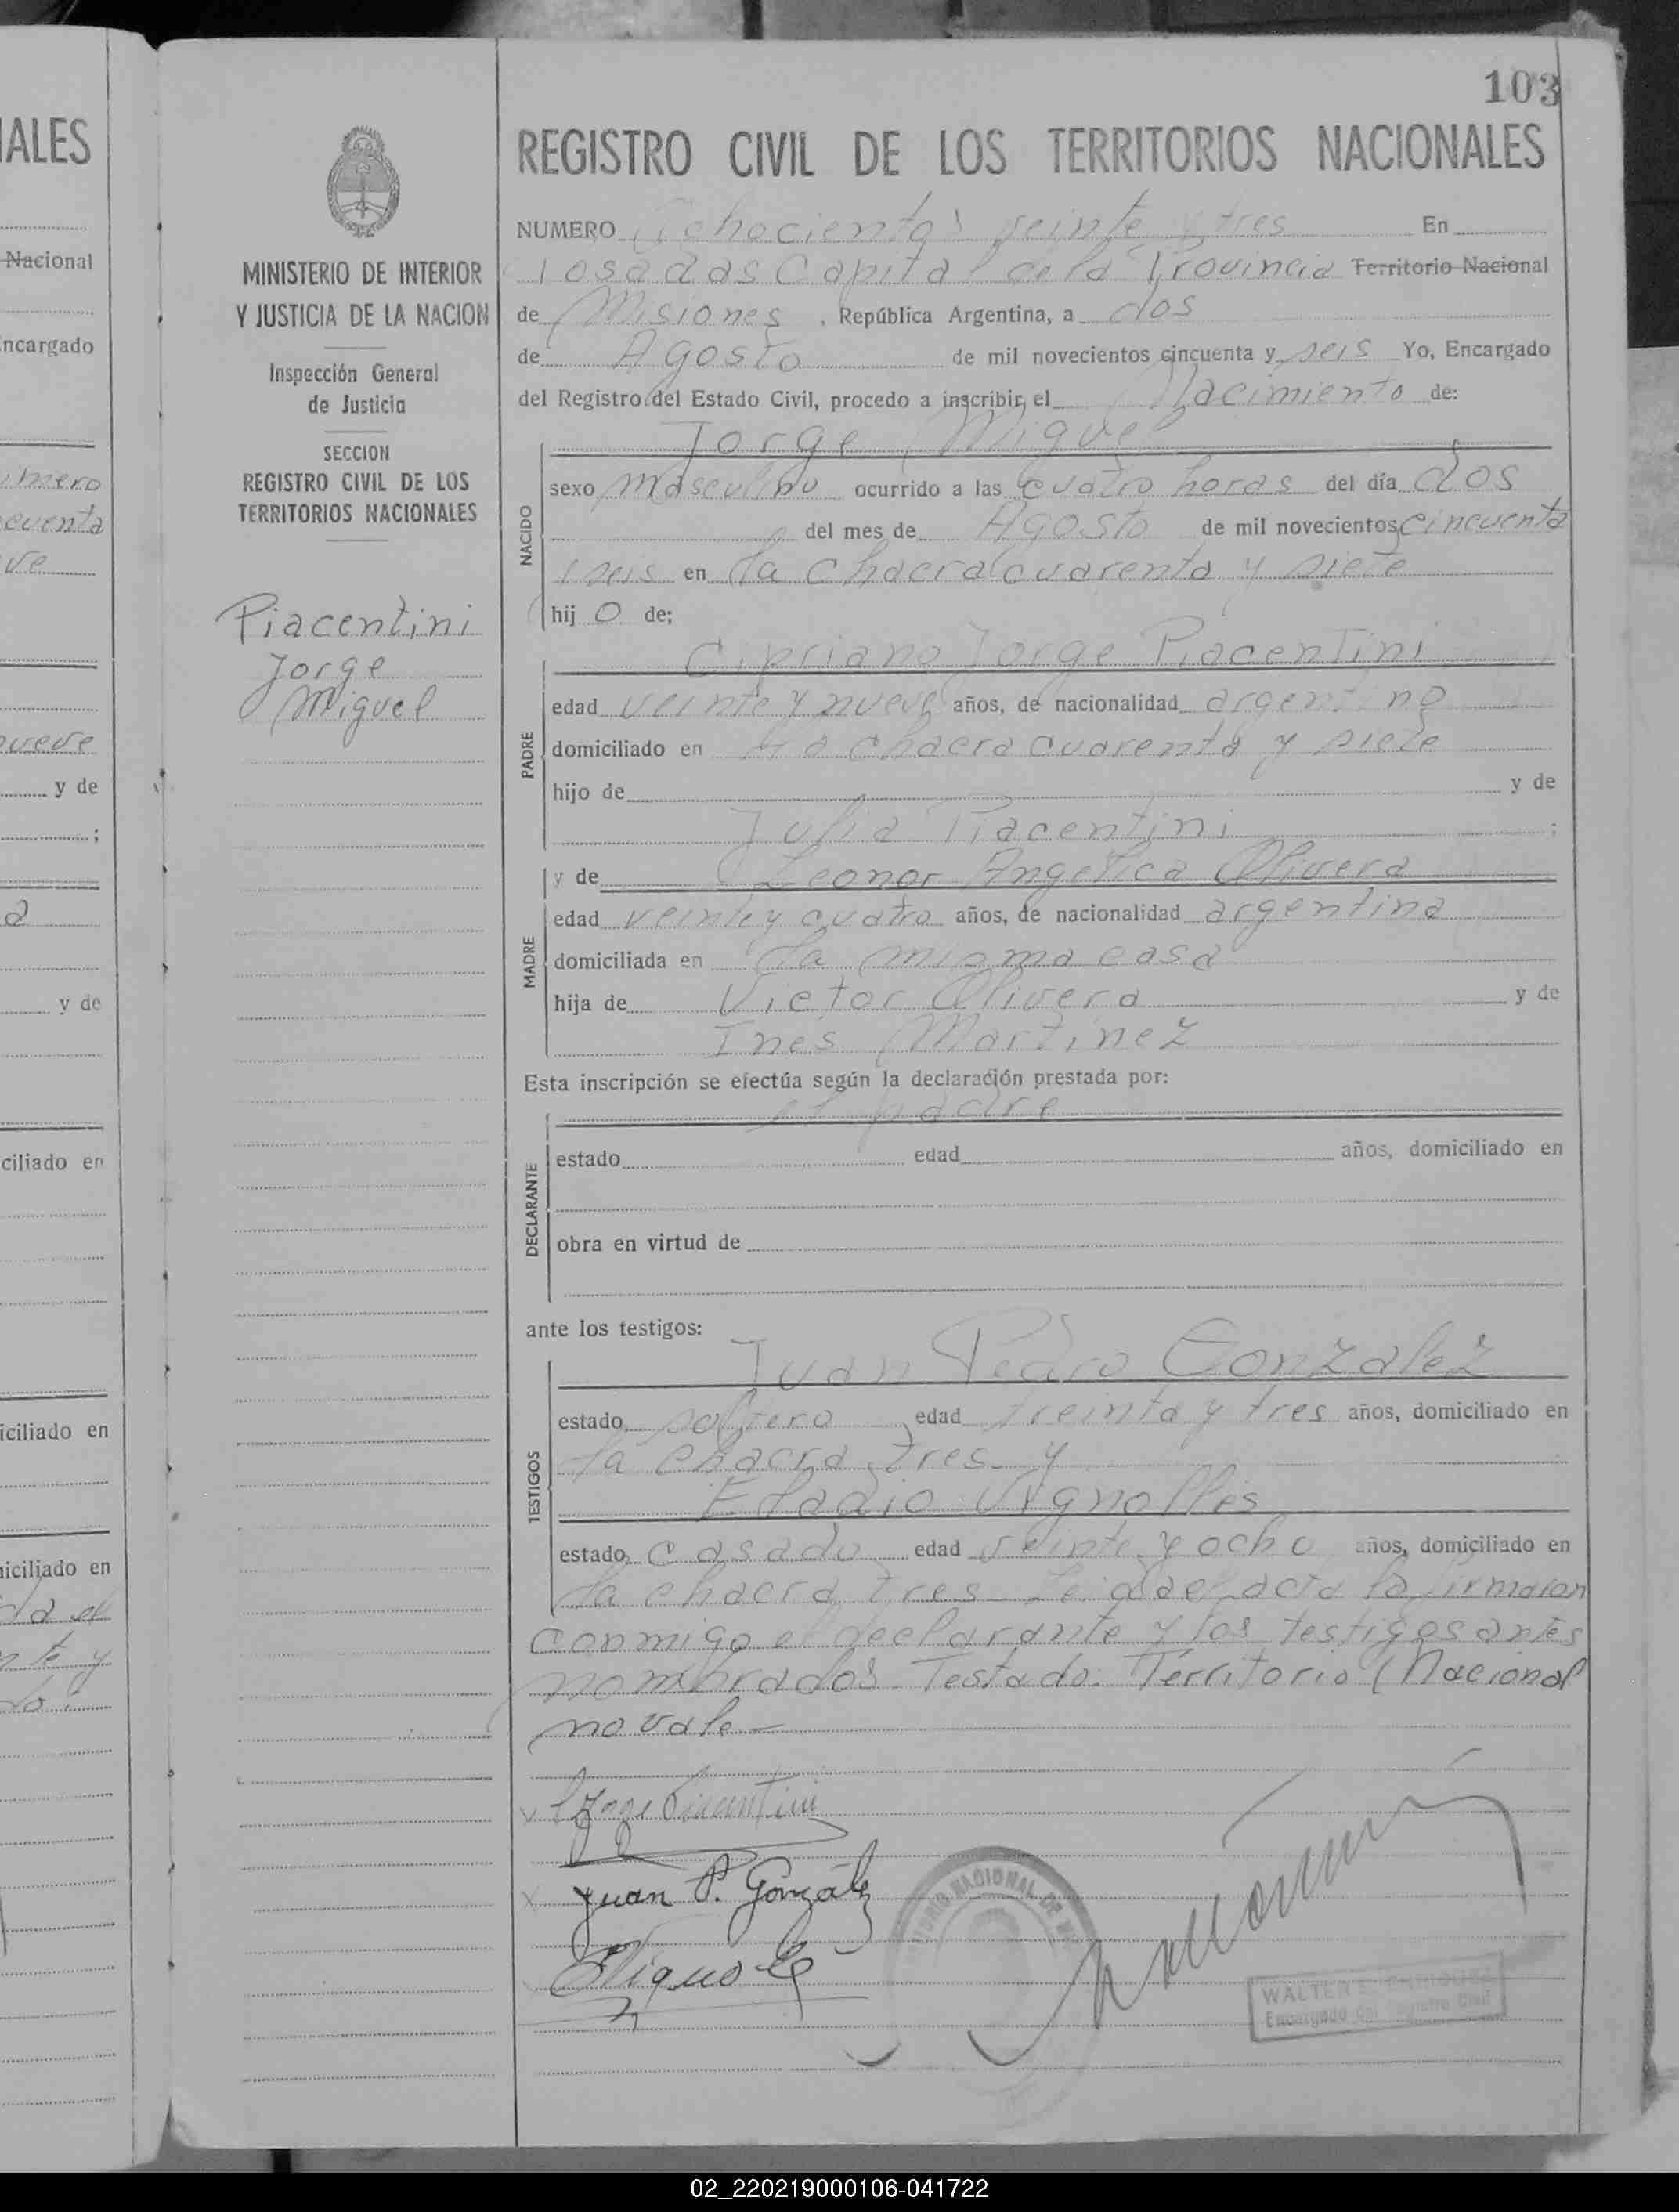 103
IALES
REGISTRO CIVIL DE LOS TERRITORIOS NACIONALES
NUMERO Ochocientos veinte y tres En
Nacional
MINISTERIO DE INTERIOR
Y JUSTICIA DE LA NACION
Posadas Capital de la Provincia Territorio Nacional
de Misiones , República Argentina, a dos
ncargado
de Agosto de mil novecientos cincuenta y seis Yo, Encargado
Inspección General
de Justicia
del Registro del Estado Civil, procedo a inscribir el Nacimiento de:
Jorge Miguel
SECCION
REGISTRO CIVIL DE LOS
TERRITORIOS NACIONALES
NACIDO
sexo masculino ocurrido a las cuatro horas del día dos
del mes de Agosto de mil novecientos cincuenta
y seis en la chacra cuarenta y siete
hij o de;
Piacentini
Jorge
Miguel
Cipriano Jorge Piacentini
PADRE
edad veinte y nueve años, de nacionalidad argentino
domiciliado en la chacra cuarenta y siete
hijo de y de
y de
Julia Piacentini ;
y de Leonor Angelica Olivera
MADRE
edad veinte y cuatro años, de nacionalidad argentina
domiciliada en la misma casa
hija de Victor Olivera y de
y de
Inés Martinez
Esta inscripción se efectúa según la declaración prestada por:
el padre
DECLARANTE
ciliado en
estado edad años, domiciliado en
obra en virtud de
ante los testigos:
Juan Pedro Gonzalez
TESTIGOS
iciliado en
estado soltero edad treinta y tres años, domiciliado en
la chacra tres y
Eladio Vignolles
iciliado en
estado casado edad veinte y ocho años, domiciliado en
la chacra tres. Leida el acta la firmaron
conmigo el declarante y los testigos antes
nombrados. Testado: Territorio Nacional
no vale—
Juan P. González
WALTER
Encargado del Registro Civil
02_220219000106-041722